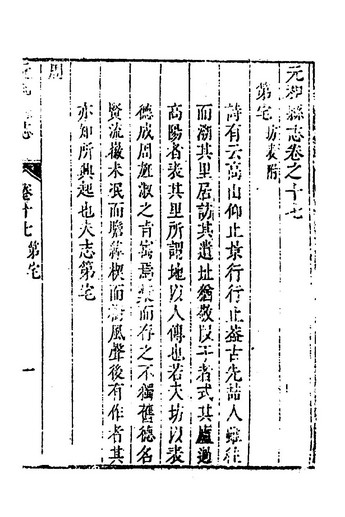 元和縣志卷之十七
第宅 坊表附
詩有云高山仰止景行行止蓋古先喆人雖往
而溯其里居訪其遺址猶敬以于者式其廬過
高陽者表其里所謂地以人傳也若夫坊以表
德成周旌淑之言寓焉彙而存之不獨舊德名
賢流徽未泯而瞻綽楔而樹風聲後有作者其
亦知所興起也夫志第宅
周
卷十七 第宅
一